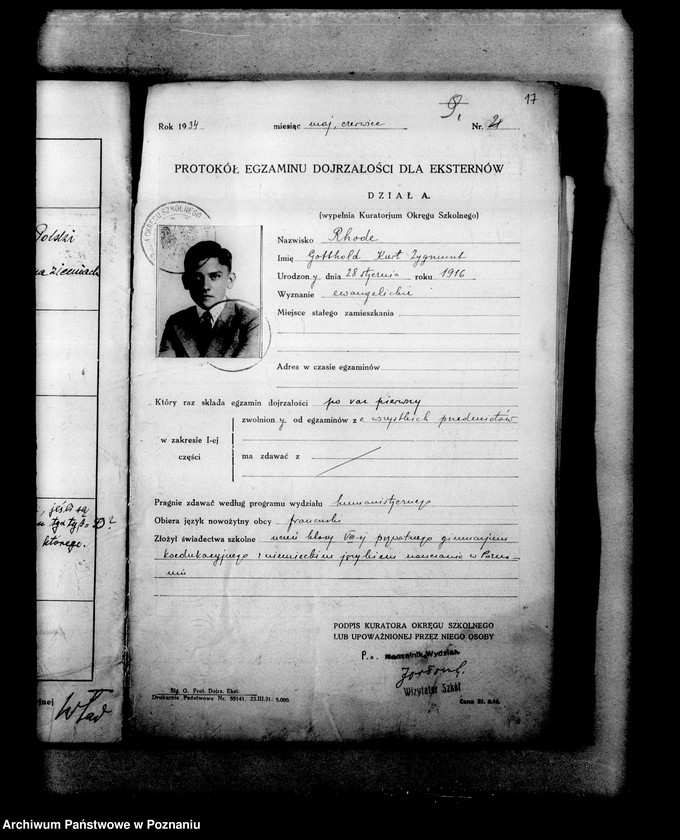 Polski
na ziemiach
jeśli są
którego.
17
9.
Rok 1934 miesiąc maj, czerwiec Nr. 21
PROTOKÓŁ EGZAMINU DOJRZAŁOŚCI DLA EKSTERNÓW
DZIAŁ A.
(wypełnia Kuratorjum Okręgu Szkolnego)
OKRĘGU SZKOLNEGO
Nazwisko Rhode
Imię Gotthold Kurt Zygmunt
Urodzony dnia 28 stycznia roku 1916
Wyznanie ewangelickie
Miejsce stałego zamieszkania
Adres w czasie egzaminów
Który raz składa egzamin dojrzałości po raz pierwszy
w zakresie I-ej części
zwolniony od egzaminów z e wszystkich przedmiotów
ma zdawać z
Pragnie zdawać według programu wydziału humanistycznego
Obiera język nowożytny obcy francuski
Złożył świadectwa szkolne uczeń klasy VIII-ej prywatnego gimnazjum
koedukacyjnego z niemieckim językiem nauczania w Pozna-
niu
PODPIS KURATORA OKRĘGU SZKOLNEGO
LUB UPOWAŻNIONEJ PRZEZ NIEGO OSOBY
P.o. Naczelnik Wydziału
Wizytator Szkół
Sig. G. Prot. Dojrz. Ekst.
Drukarnia Państwowa Nr. 55141. 23.III.31. 2.000.
Cena Zł. 0.10.
Archiwum Państwowe w Poznaniu